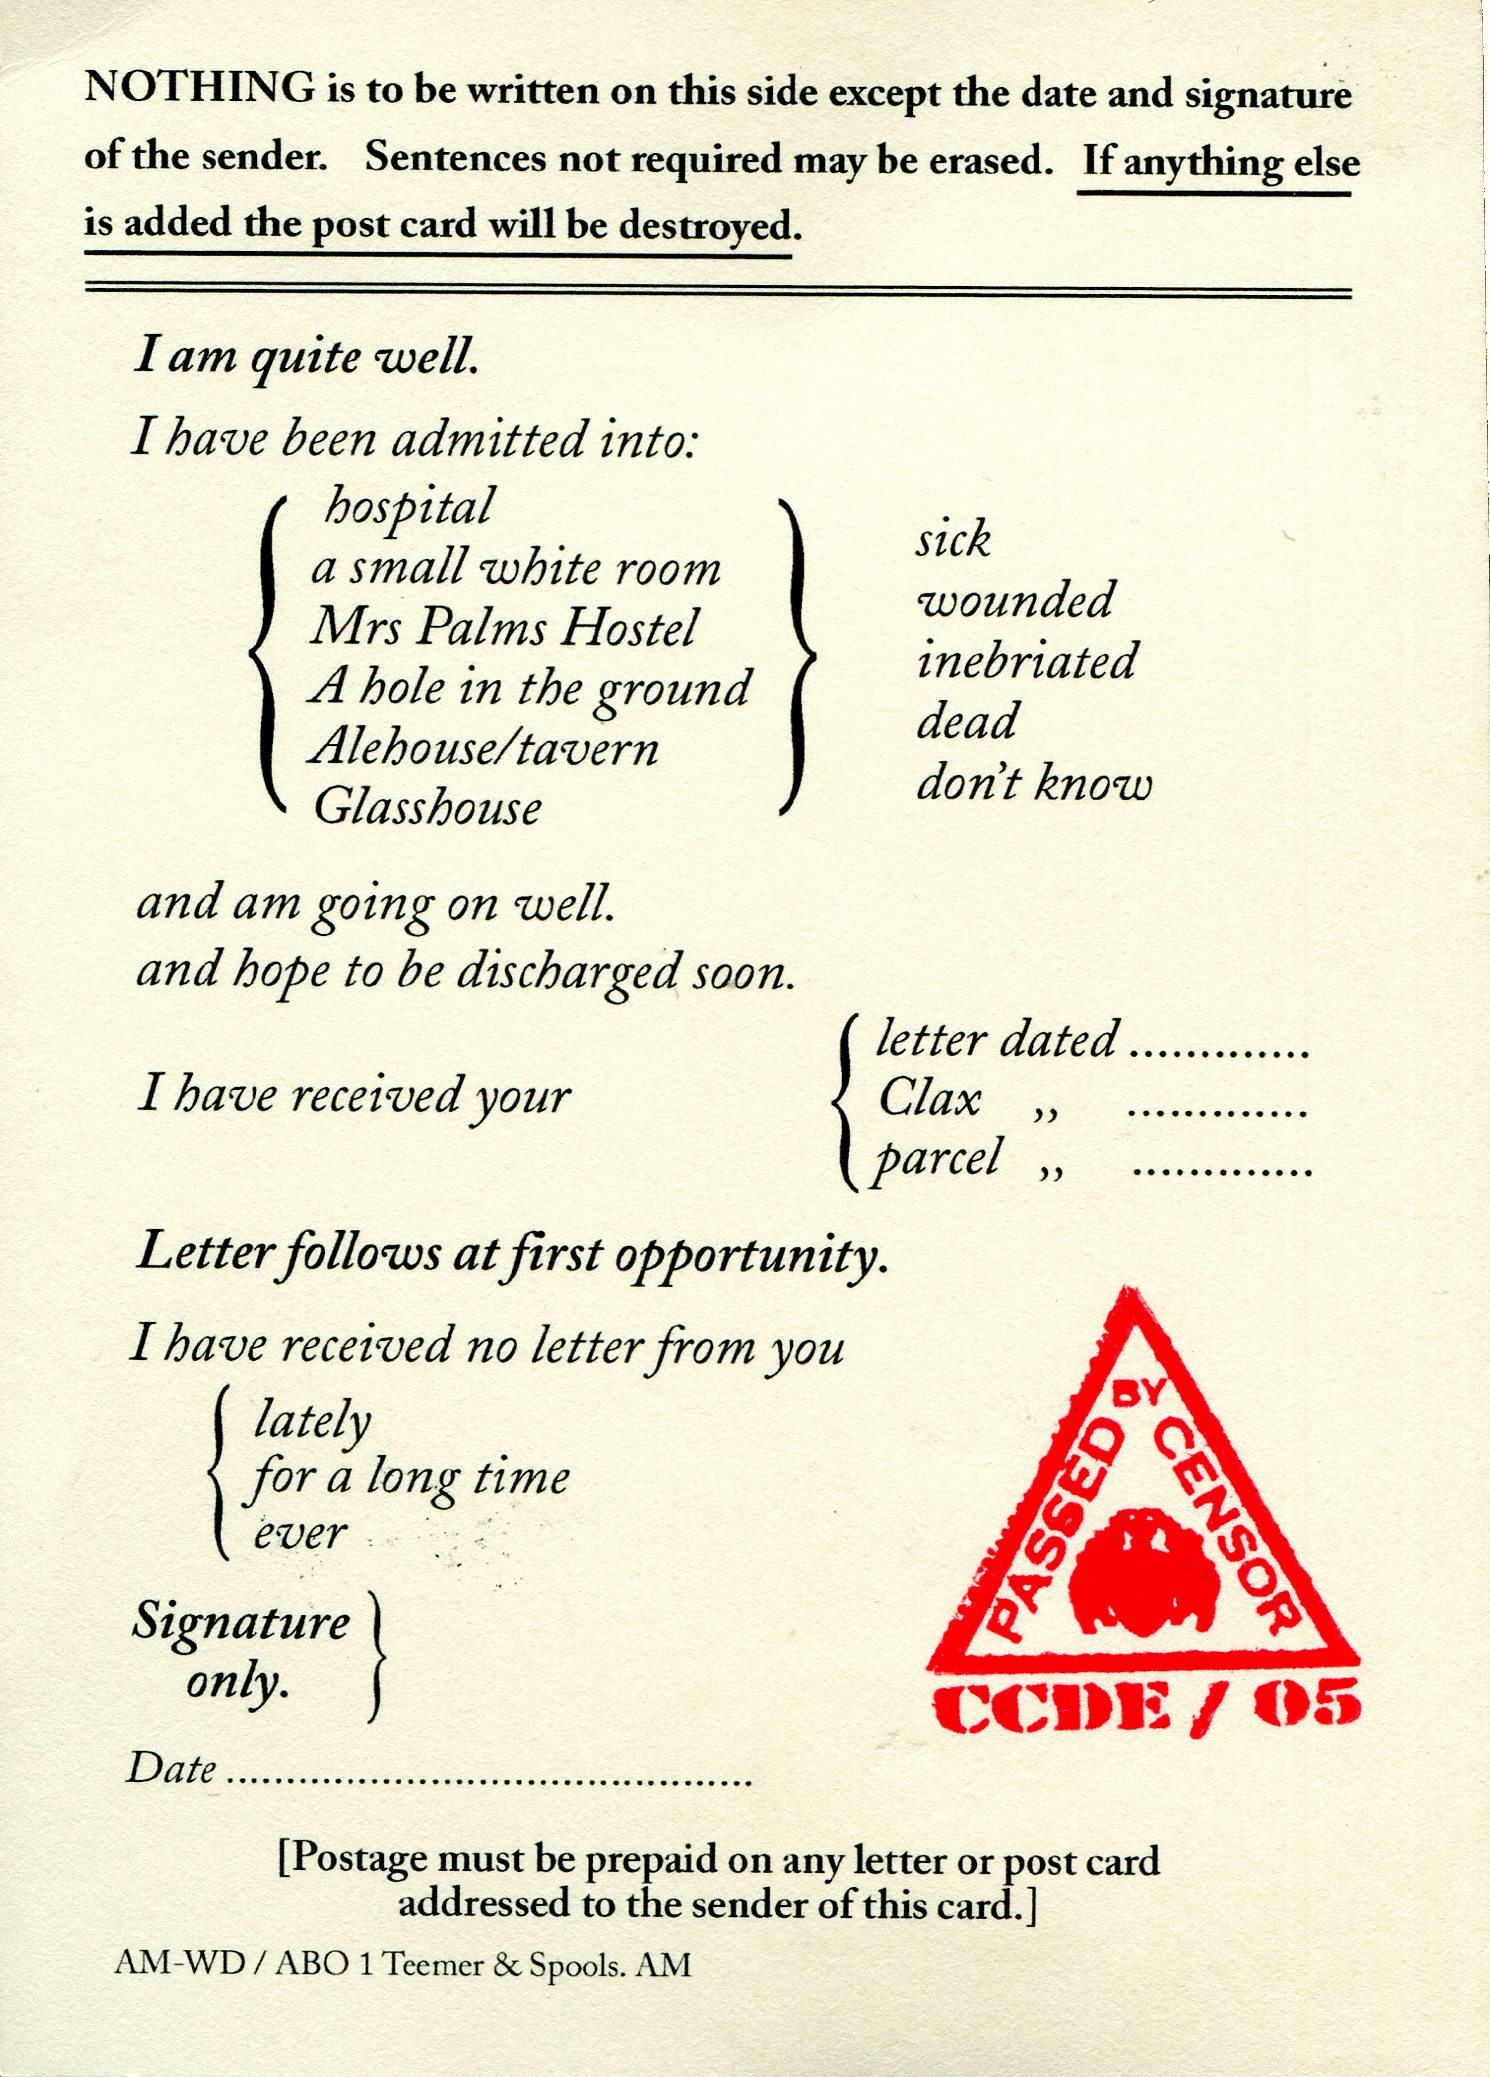 NOTHING is to be written on this side except the date and signature
of the sender. Sentences not required may be erased. If anything else
is added the post card will be destroyed.
I am quite well.
I have been admitted into:
hospital
a small white room
Mrs Palms Hostel
A hole in the ground
Alehouse/tavern
Glasshouse
sick
wounded
inebriated
dead
don't know
and am going on well.
and hope to be discharged soon.
I have received your
letter dated .............
Clax ,, .............
parcel ,, .............
Letter follows at first opportunity.
I have received no letter from you
lately
for a long time
ever
Signature
only.
PASSED BY CENSOR
CCDE / 05
Date ............................................
[Postage must be prepaid on any letter or post card
addressed to the sender of this card.]
AM-WD / ABO 1 Teemer & Spools. AM